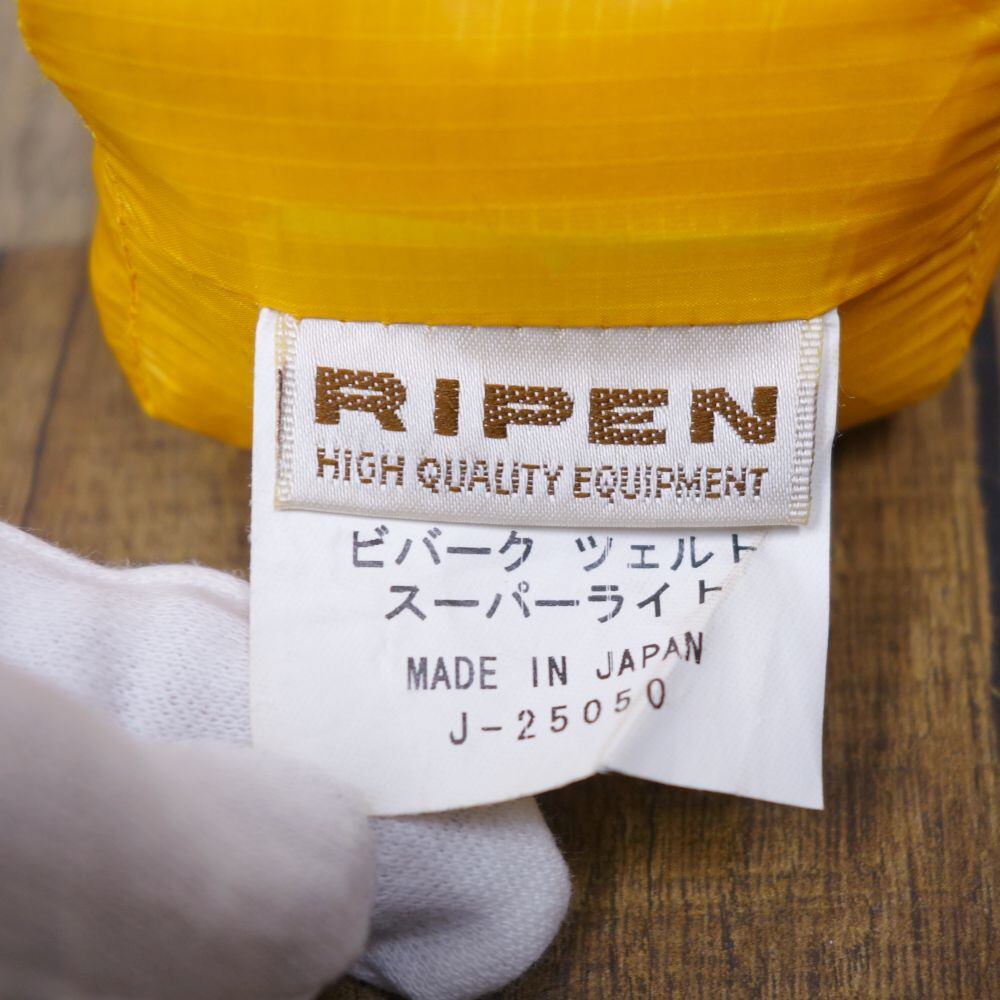 RIPEN
HIGH QUALITY EQUIPMENT
ビバーク ツェルト
スーパーライト
MADE IN JAPAN
J-25050